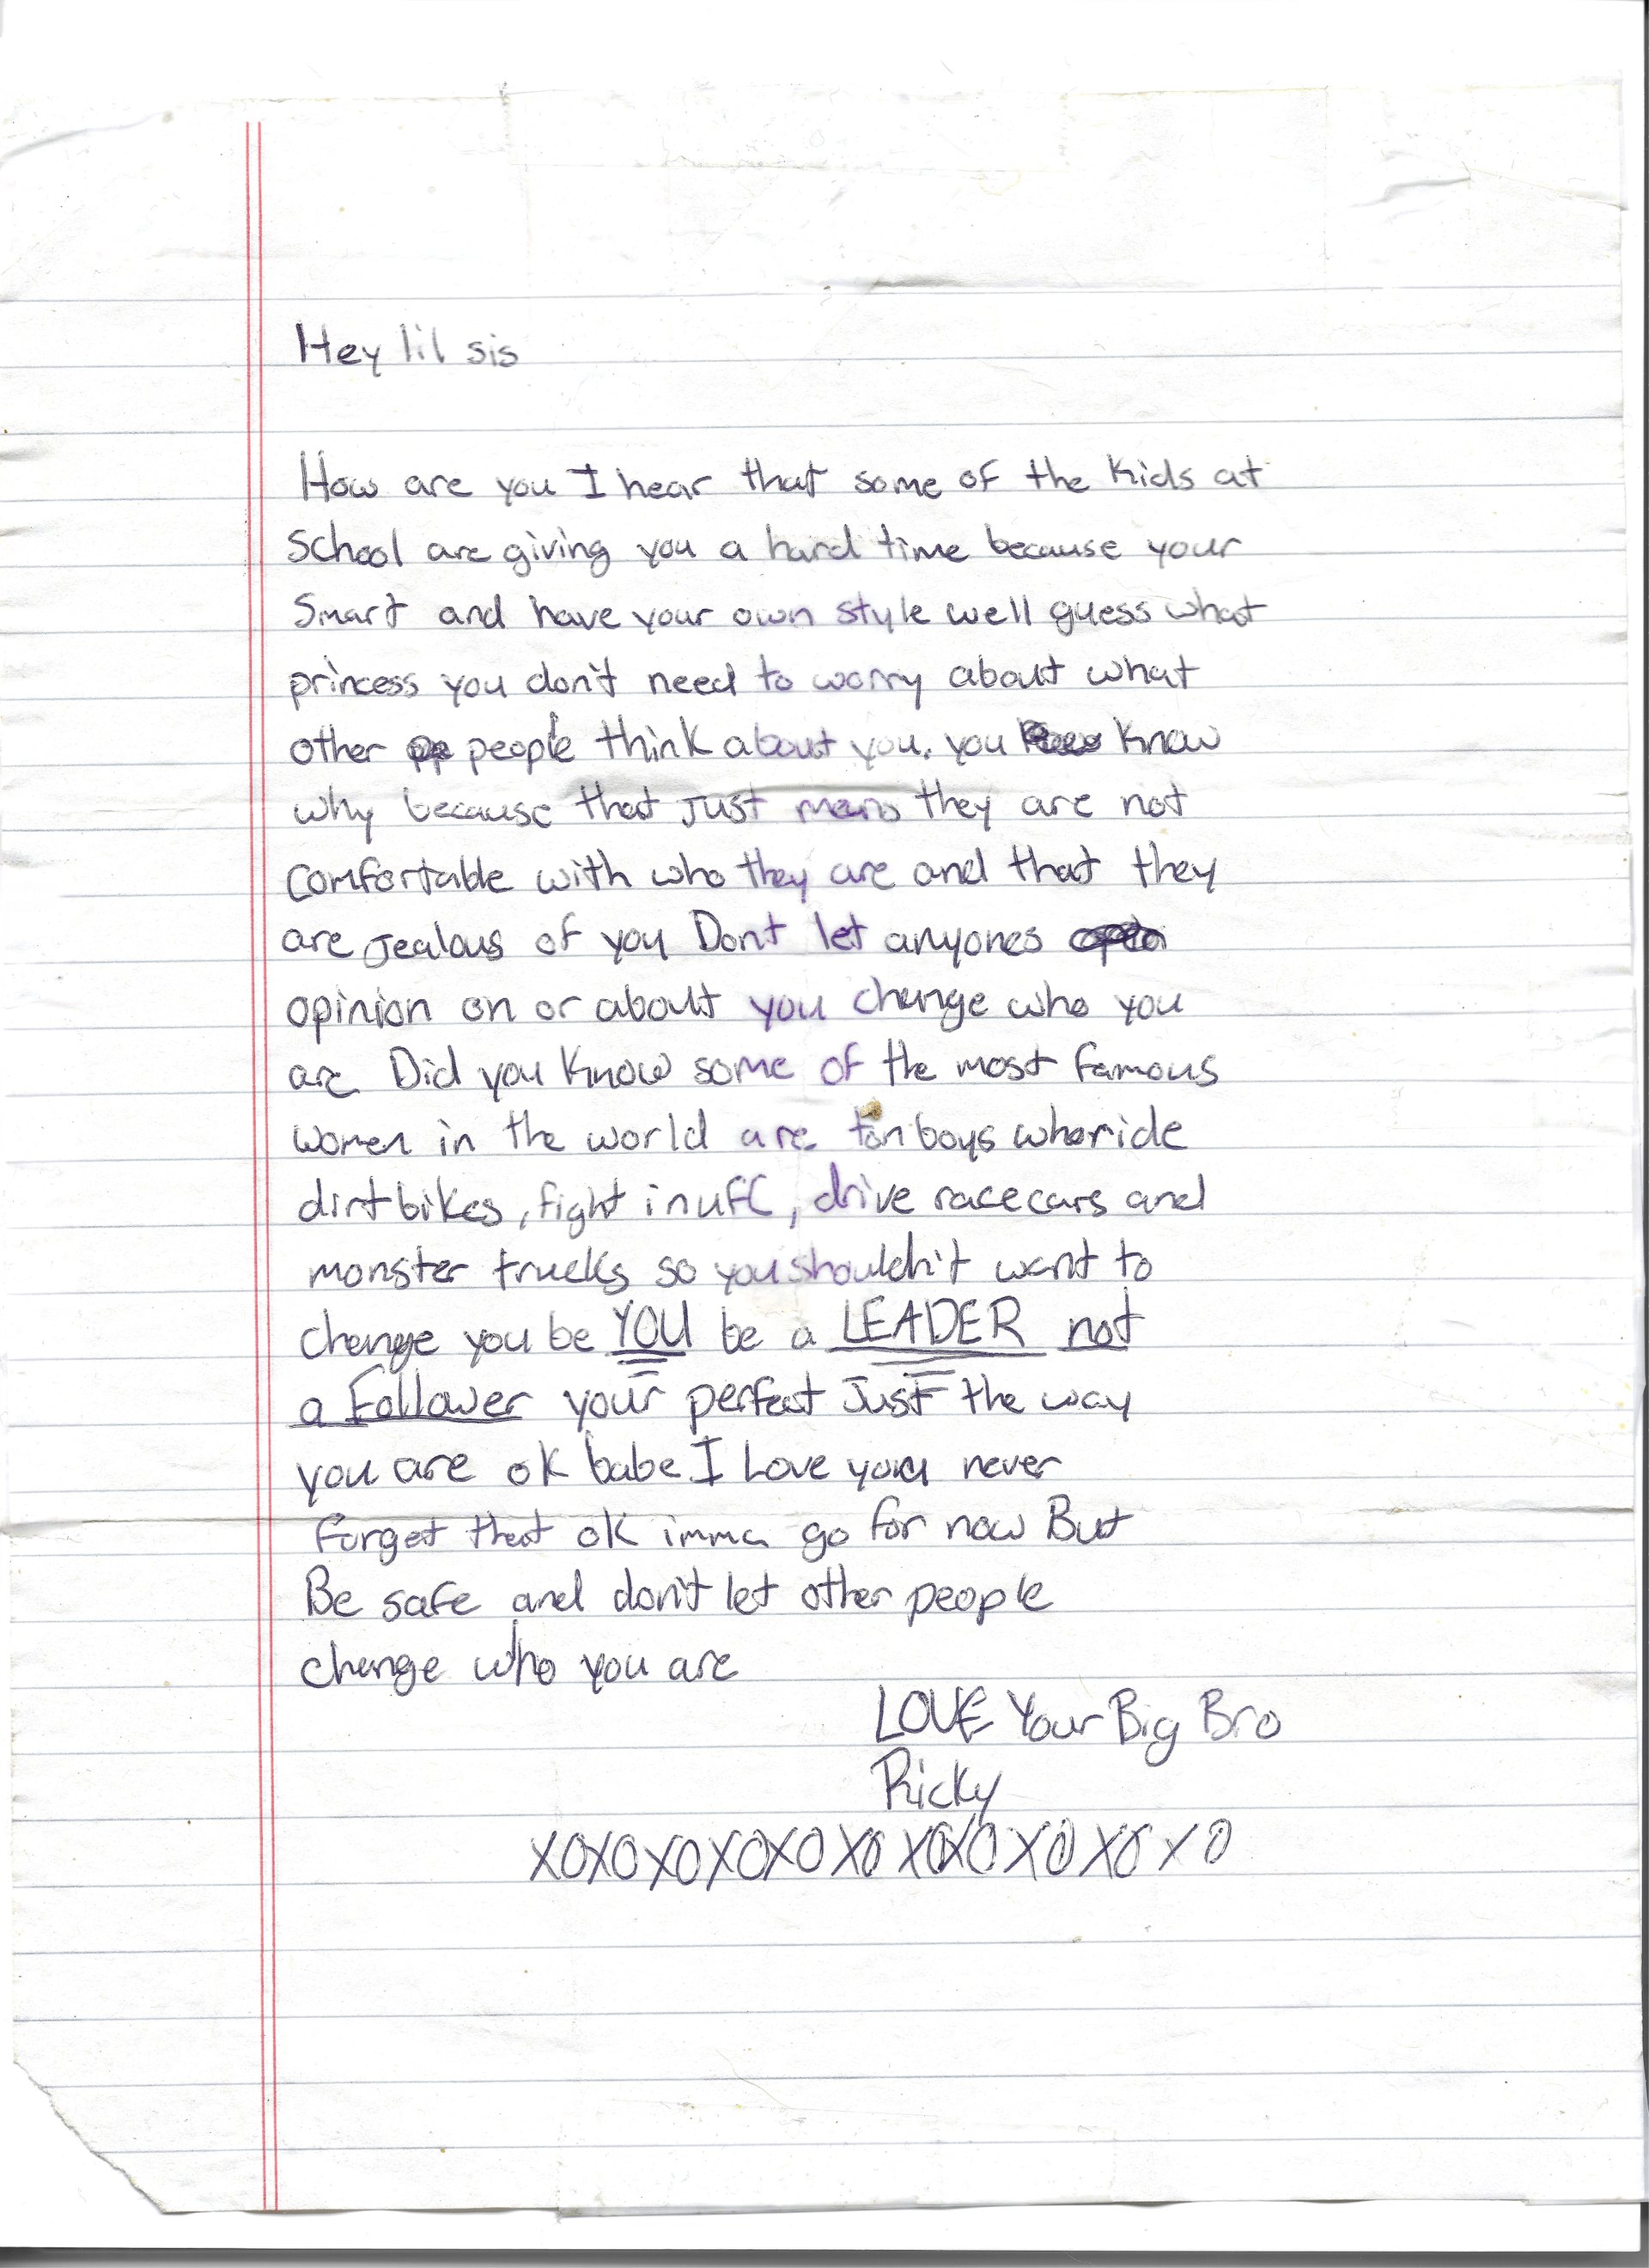 Hey lil sis
How are you I hear that some of the kids at
School are giving you a hard time because your
Smart and have your own style well guess what
princess you don't need to worry about what
other people think about you. you know
why because that just means they are not
comfortable with who they are and that they
are Jealous of you Dont let anyones
opinion on or about you change who you
are Did you know some of the most famous
women in the world are tomboys who ride
dirtbikes, fight in ufC, drive racecars and
monster trucks so you shouldn't want to
change you be YOU be a LEADER not
a Follower your perfect Just the way
you are ok babe I Love you never
forget that ok imma go for now But
Be safe and don't let other people
change who you are
LOVE Your Big Bro
Ricky
XOXOXOXOXOXOXOXOXOXOXO